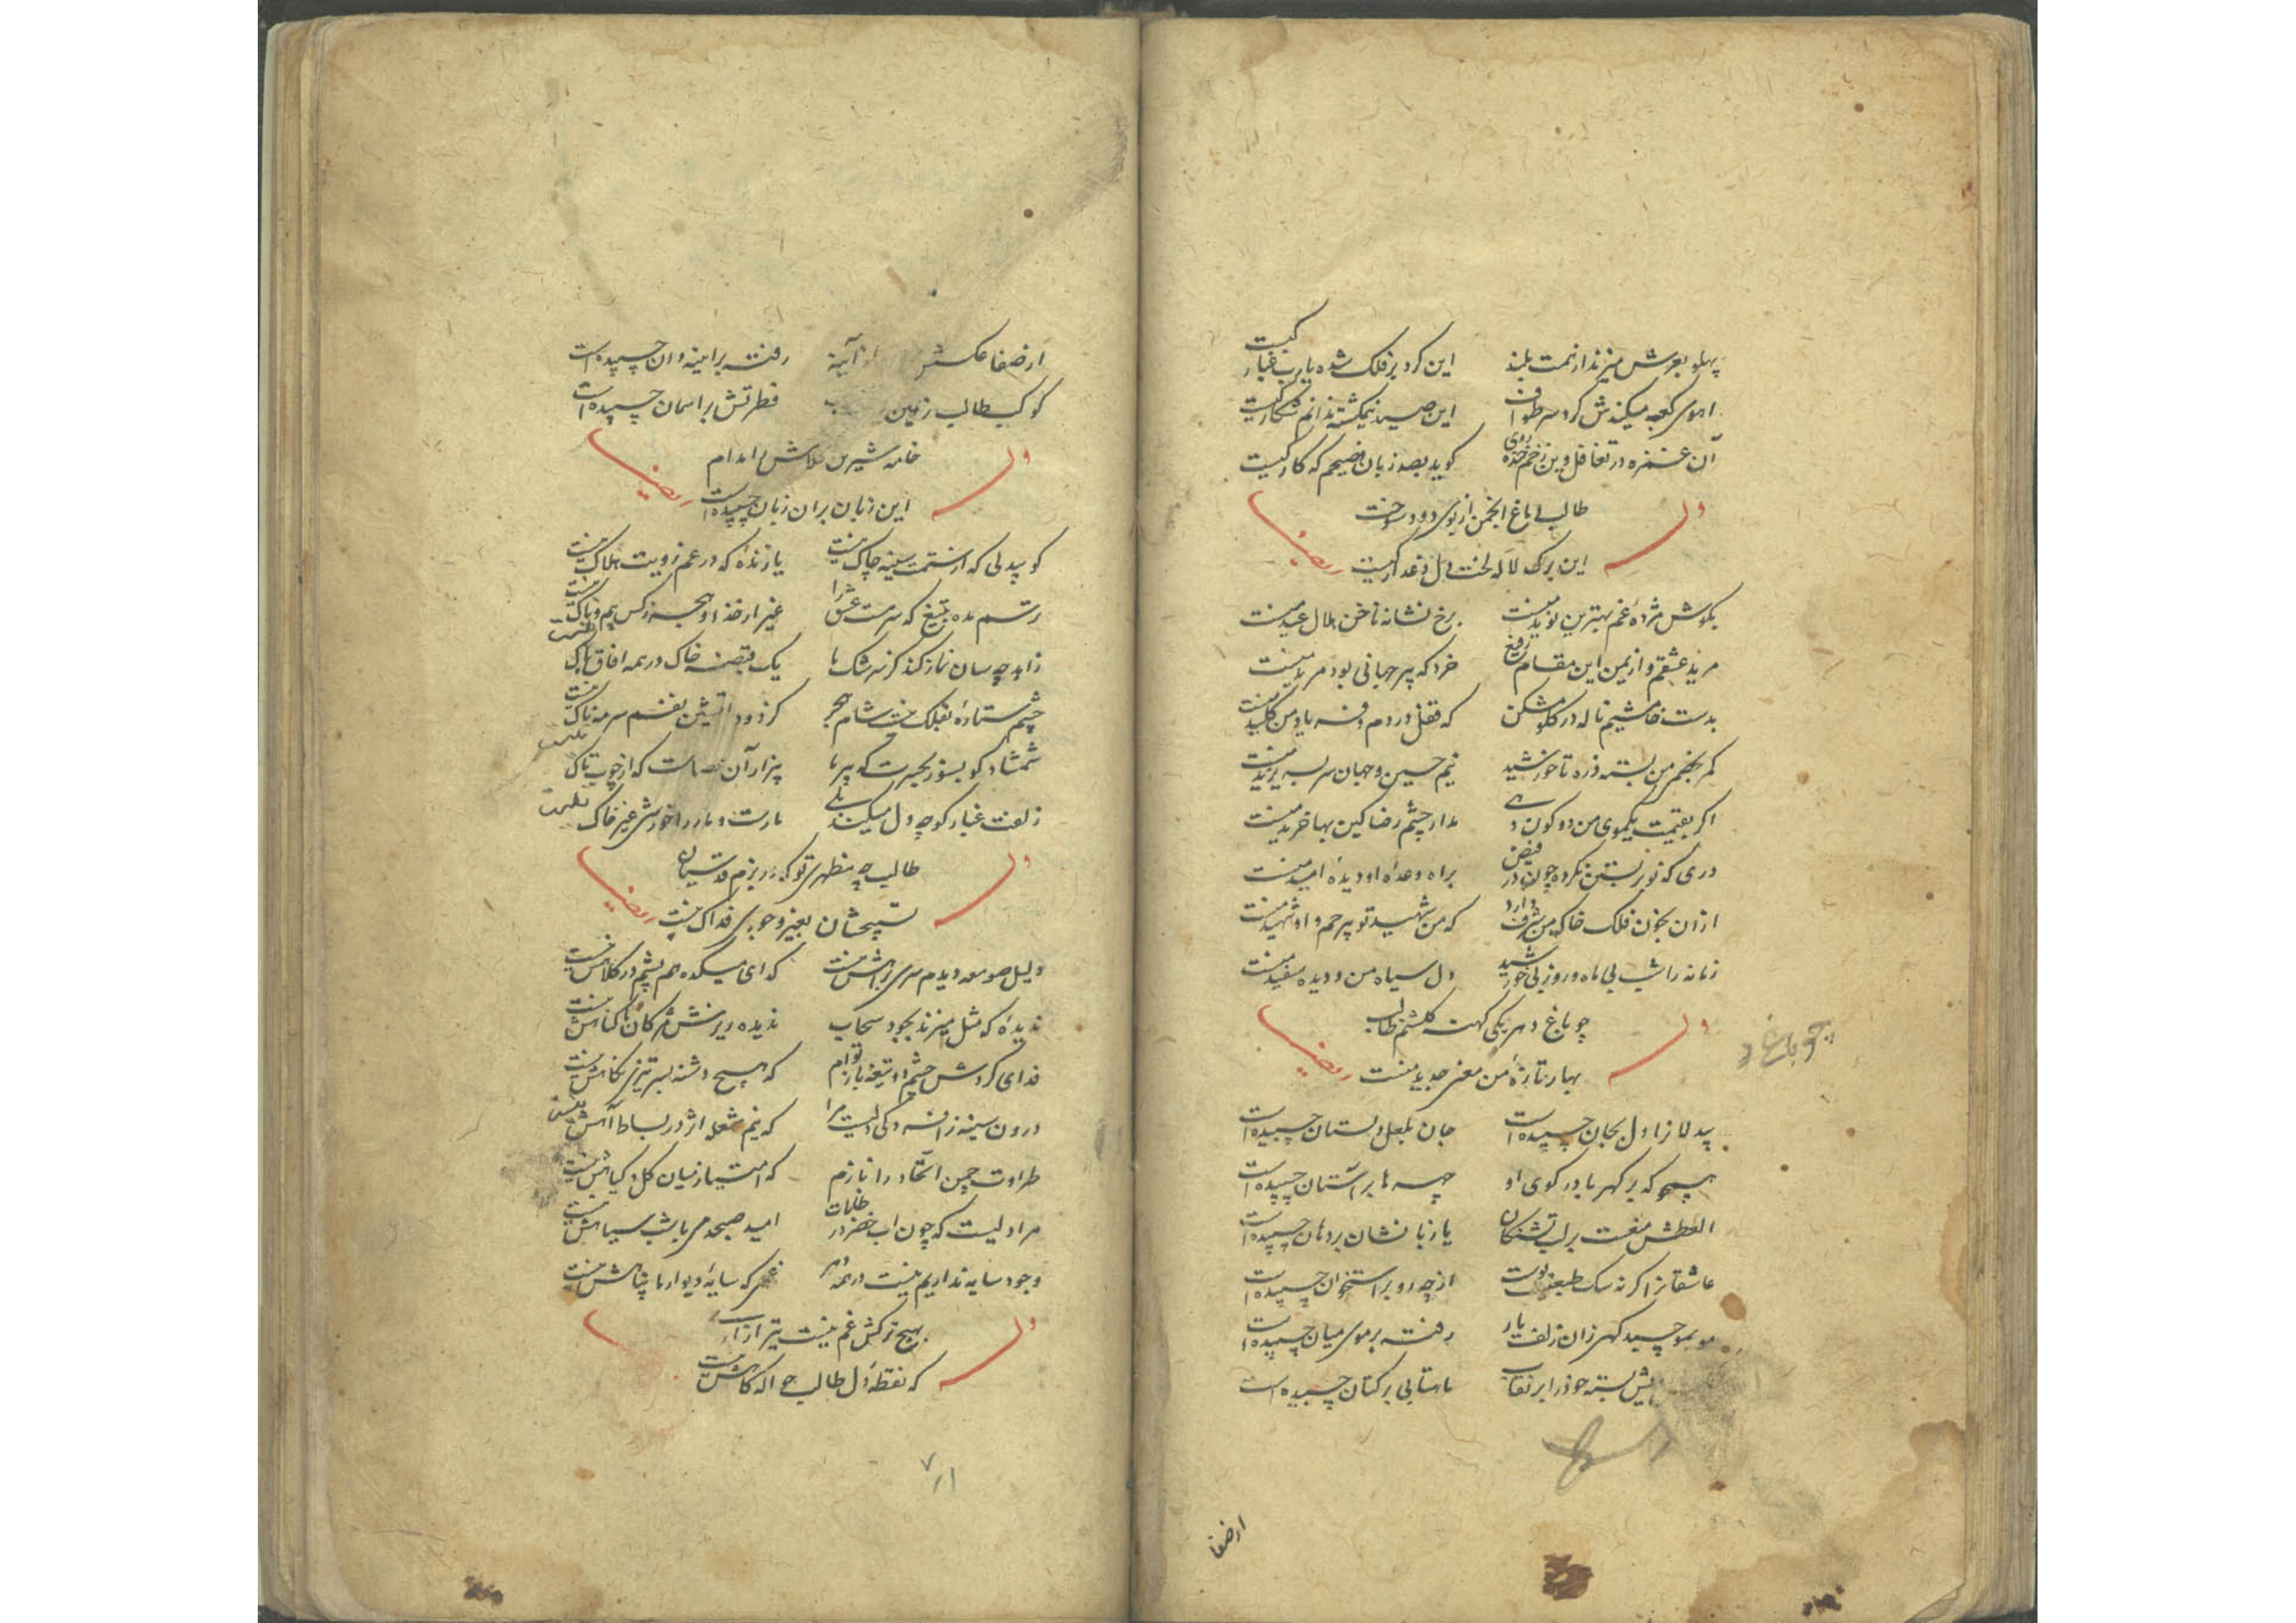 پهلو بعرش میزند از همت بلند این کرد بر فلک شده یارب غبار کیست
اهوی کعبه میکندش کرد سر طواف این صید نیمکشته ندانم شکار کیست
آن غمزه در تغافل وین زخم خنده روی کوید بصد زبان فصیحم که کار کیست
طالب دماغ انجمن از بوی دود سوخت
وله ایضا
این برک لاله لخت دل داغدار کیست
بکوش مژده غم بهترین نوید منست برخ نشانه ناخن هلال عید منست
مرید عشقم و از یمن این مقام رفیع خرد که پیر جهانی بود مرید منست
بدست خامشیم ناله در کلو مشکن که قفل در دم و فریاد من کلید منست
کمر بخصم من بسته ذره تا خورشید نیم حسین و جهان سر بسر یزید منست
اکر بقیمت یکموی من دو کون دهی مدار چشم رضا کین بها خرید منست
دری که نو بستن نکرده چون در فیض براه وعده او دیده امید منست
ازان بخون فلک خاک من شرف دارد که من شهید تو بیرحم و او شهید منست
زمانه را شب بی ماه و روز بی خورشید دل سیاه من و دیده سفید منست
چو باغ دهر یکی کهنه کلشنم طالب
وله ایضا
بهار تازه من معنی جدید منست
چو باغ د
بیدلانرا دل بجان چسپیده است جان بلعل دلستان چسپیده است
همچو که بر کهربا در کوی او جبهه ها بر آستان چسپیده است
العطش مغست بر لب تشنکان یا زبانشان بر دهان چسپیده است
عاشقانرا کر نه سک طبعیست از چه رو بر استخوان چسپیده است
مو بمو چسپید کهر زان زلف یار رفته بر موی میان چسپیده است
بسته خود را بر نقاب ماهتابی بر کتان چسپیده است
از صفا
از صفا عکسش از آینه رفته بر آینه دان چسپیده است
کوکب طالب زمین فطرتش بر اسمان چسپیده است
خامه شیرین تلاش را مدام
وله ایضا
این زبان بران زبان چسپیده است
کو بیدلی که از ستمت سینه چاک نیست یا زنده که در غم رویت هلاک نیست
رستم مده بتیغ که سرمست عشق را غیر از خدا و هجر ز کس بیم و باک نیست
زاهد چه سان نماز کند کز سرشک ما یک قبضه خاک در همه افاق پاک نیست
چشم ستاره بفلک نیست شام هجر کز دود آتشین نفسم سرمه ناک نیست
شمشاد کو بسوز بحسرت که پیر ما بیزار آن عصاست که از چوب تاک نیست
زلفت غبار کوچه دل میکند بلی مارست و مار را خورش غیر خاک نیست
طالب چه مظهری تو که در بزم قدسیان
وله ایضا
تسبیحشان بغیر وجودی فداک نیست
دلیل صومعه دیدم سری براهش نیست کدای میکده هم پشم در کلاهش نیست
ندیده که مثل میزند بجود سحاب ندیده ریزش مژکان پاکناهش نیست
فدای کردش چشم دو تیغه باز توام که هیچ دشنه بسر تیزی نکاهش نیست
درون سینه ز افسردکی دلیست مرا که نیم شعله اثر در بساط آهش نیست
طراوت چمن اتحاد را نازم که امتیاز میان کل و کیاهش نیست
مرا دلیست که چون اب خضر در ظلمات امید صبحدمی با شب سیاهش نیست
وجود سایه نداریم نیست در همه دهر غمی که سایه دیوار ما پناهش نیست
وله
بهیچ ترکش غم نیست تیر ازار
که نقطه دل طالب حواله کاهش نیست